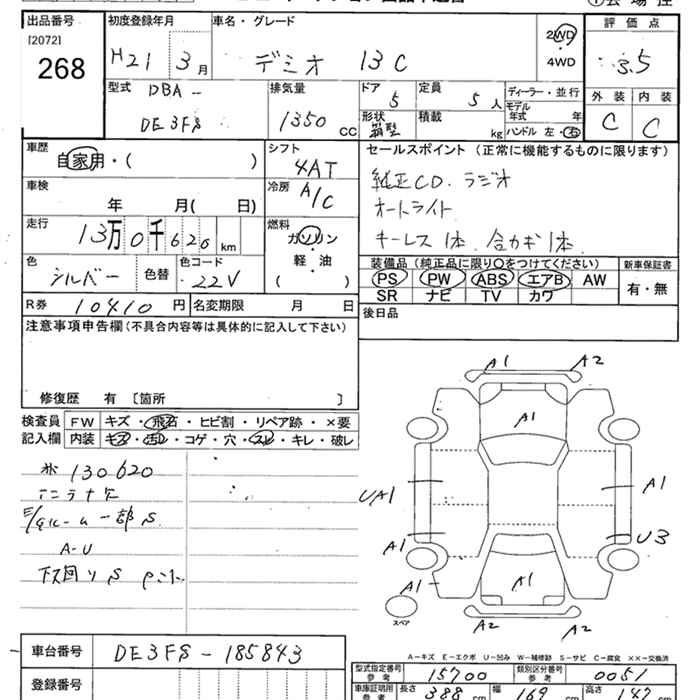 出品番号 初度登録年月 車名・グレード 2WD 評価点
[2072]
268 H21 3月 デミオ 13C 4WD 3.5
型式 DBA- 排気量 ドア 定員 ディーラー・並行 外装 内装
DE3FS 1350 CC 5 5人 モデル年式 年
形状 箱型 積載 kg ハンドル 左・右 C C
車歴 シフト セールスポイント (正常に機能するものに限ります)
自家用・( ) 4AT 純正CD.ラジオ
車検 冷房 オートライト
年 月( 日) A/C キーレス1本.合カギ1本
走行 燃料 装備品(純正品に限り○をつけてください) 新車保証書
13万0千620km ガソリン・軽油 PS PW ABS エアB AW 有・無
色 色替 色コード SR ナビ TV カワ
シルバー 22V
R券 10410円 名変期限 月 日 後日品
注意事項申告欄(不具合内容等は具体的に記入して下さい)
修復歴 有 〔箇所 〕
検査員 FW キズ・飛石・ヒビ割・リペア跡・×要
記入欄 内装 キズ・汚れ・コゲ・穴・スレ・キレ・破レ
130620
A-U
A1 A2
A1
UA1 A1
A1 U3
A1 A1
スペア
A2 A2
A-キズ E-エクボ U-凹み W-補修跡 S-サビ C-腐食 ××-交換済
車台番号 DE3FS-185843
型式指定番号 参考 15700 類別区分番号 参考 0051
登録番号
車庫証明用 参考 長さ 388 cm 幅 169 cm 高さ 147